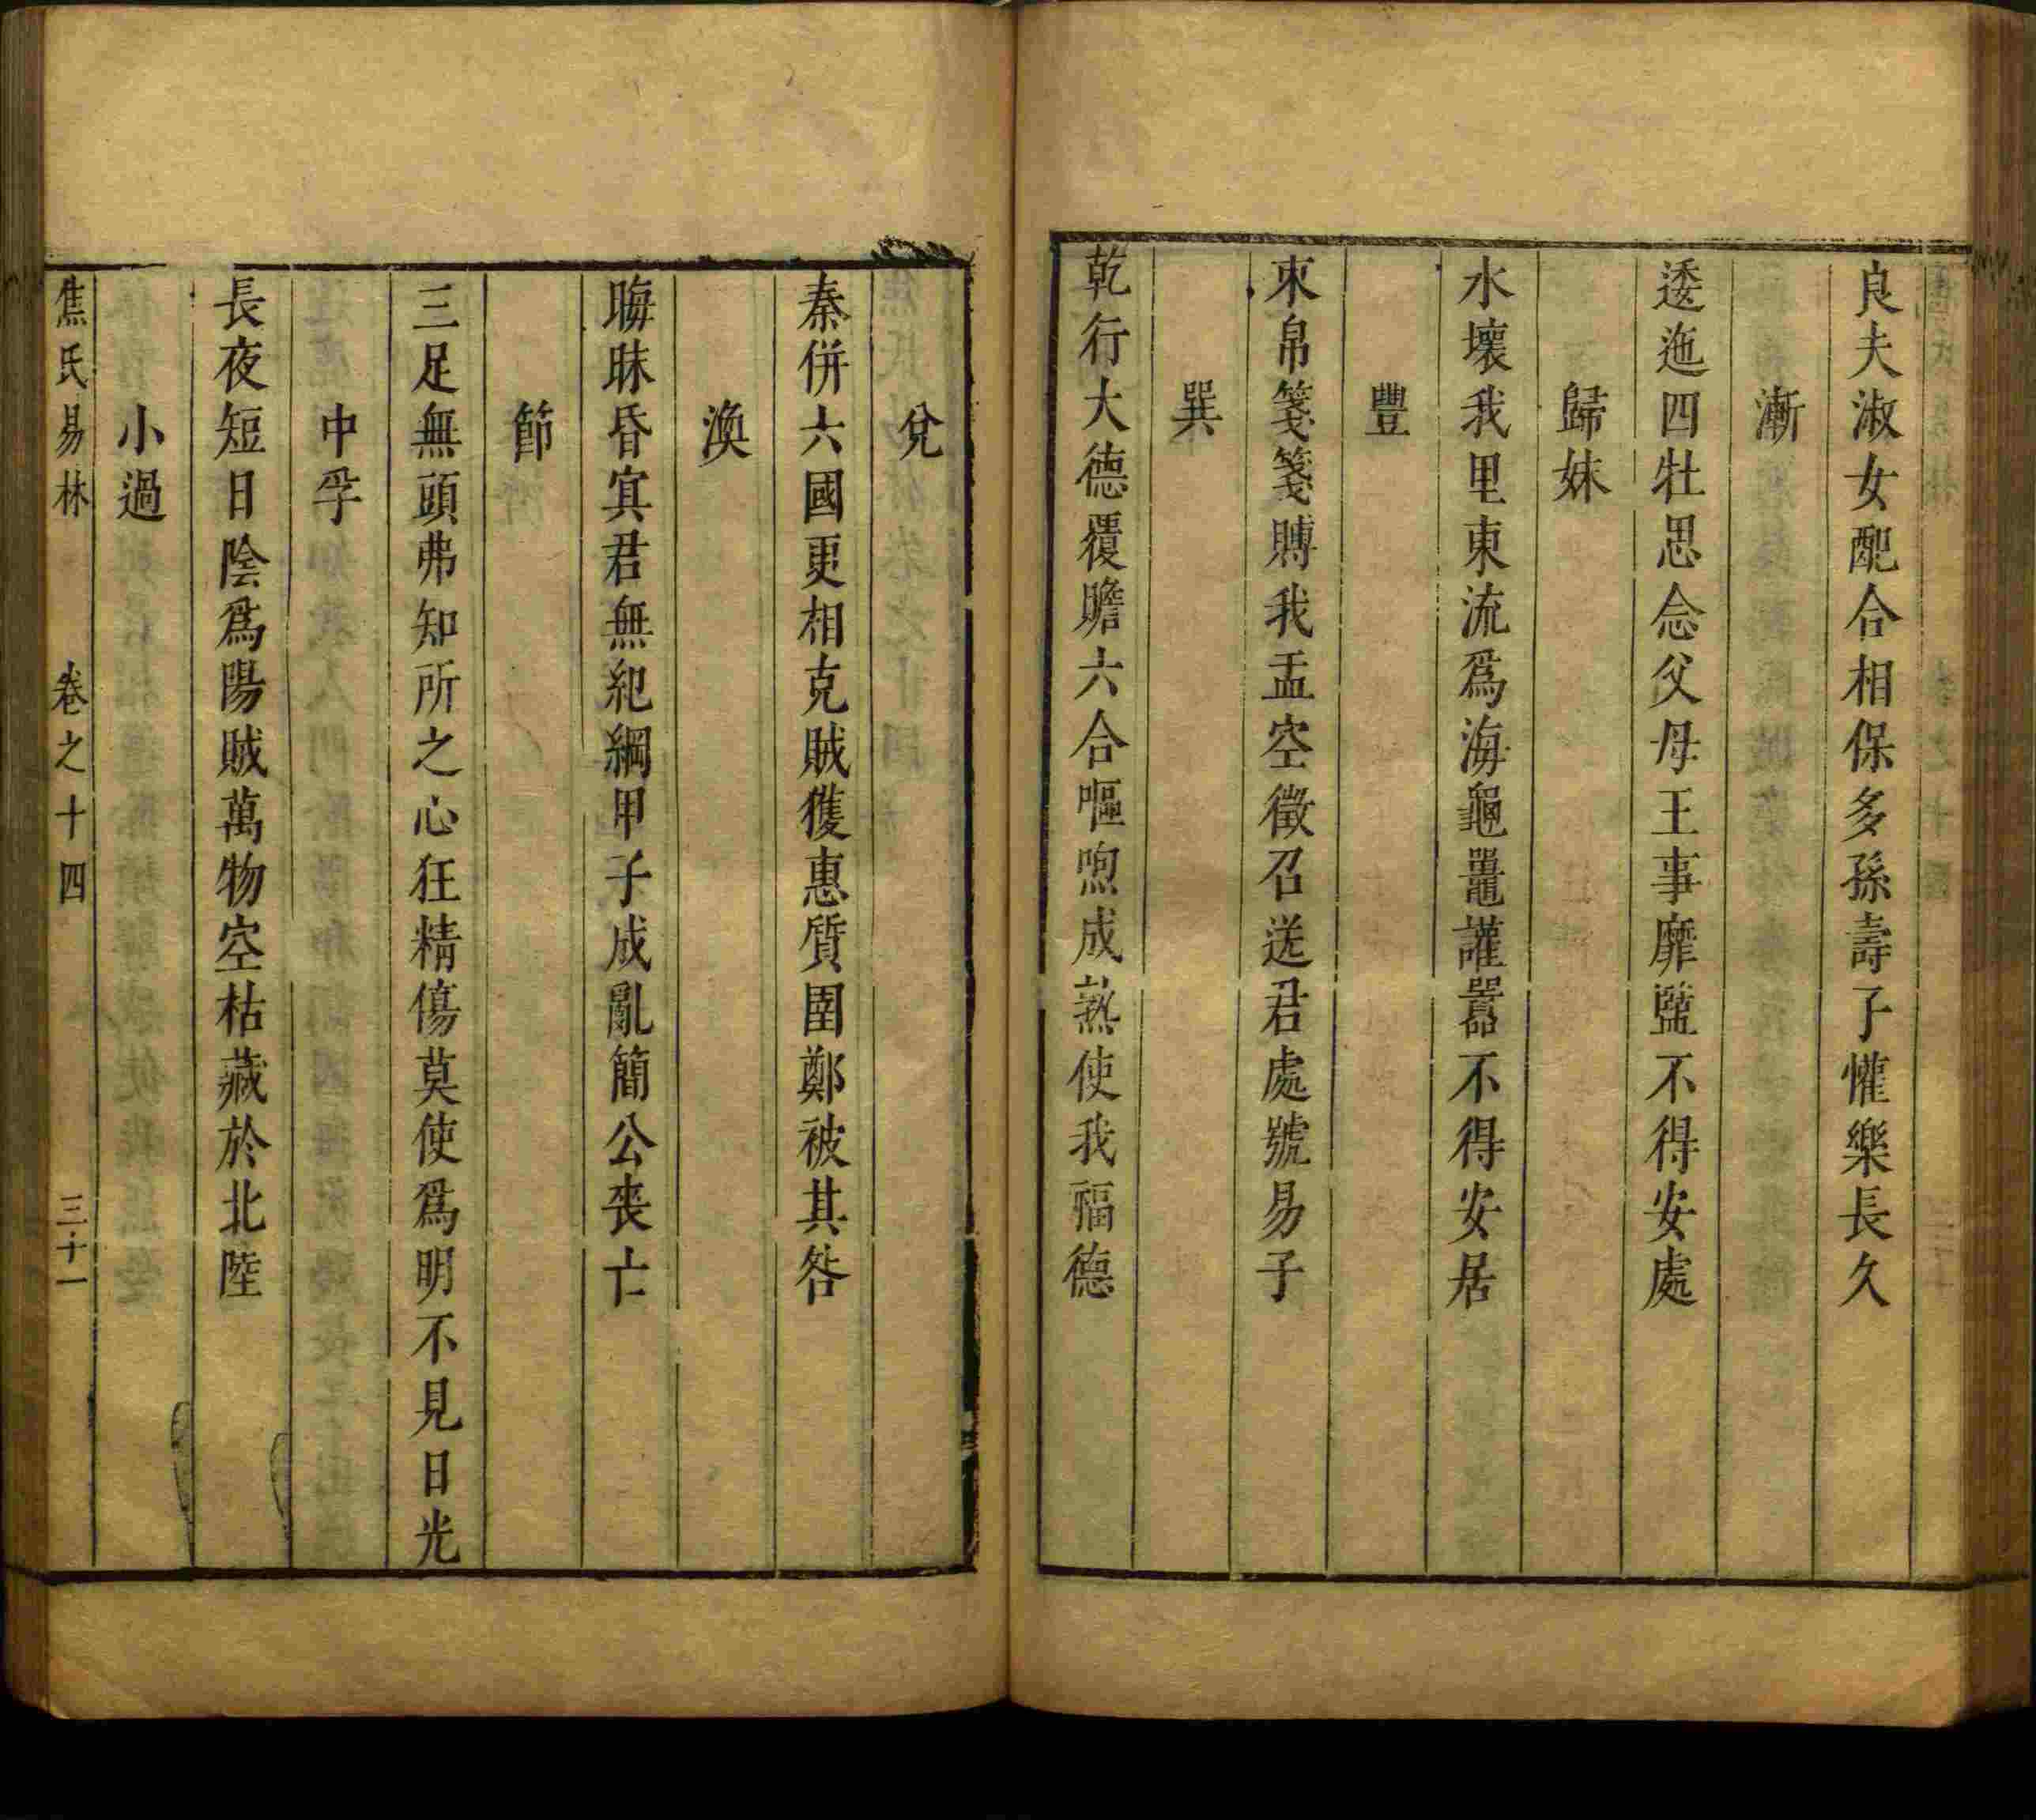 良夫淑女配合相保多孫壽子懽樂長久
漸
逶迤四牡思念父母王事靡盬不得安處
歸妹
水壞我里東流爲海龜鼉讙嚻不得安居
豐
束帛箋箋賻我孟空徵召送君處號易子
巽
乾行大德覆贍六合嘔喣成熟使我福德
兌
秦併六國更相克賊獲惠質圉鄭被其咎
渙
晦昧昏冥君無紀綱甲子成亂簡公喪亡
節
三足無頭弗知所之心狂精傷莫使爲明不見日光
中孚
長夜短日陰爲陽賊萬物空枯藏於北陸
小過
焦氏易林 卷之十四 三十一